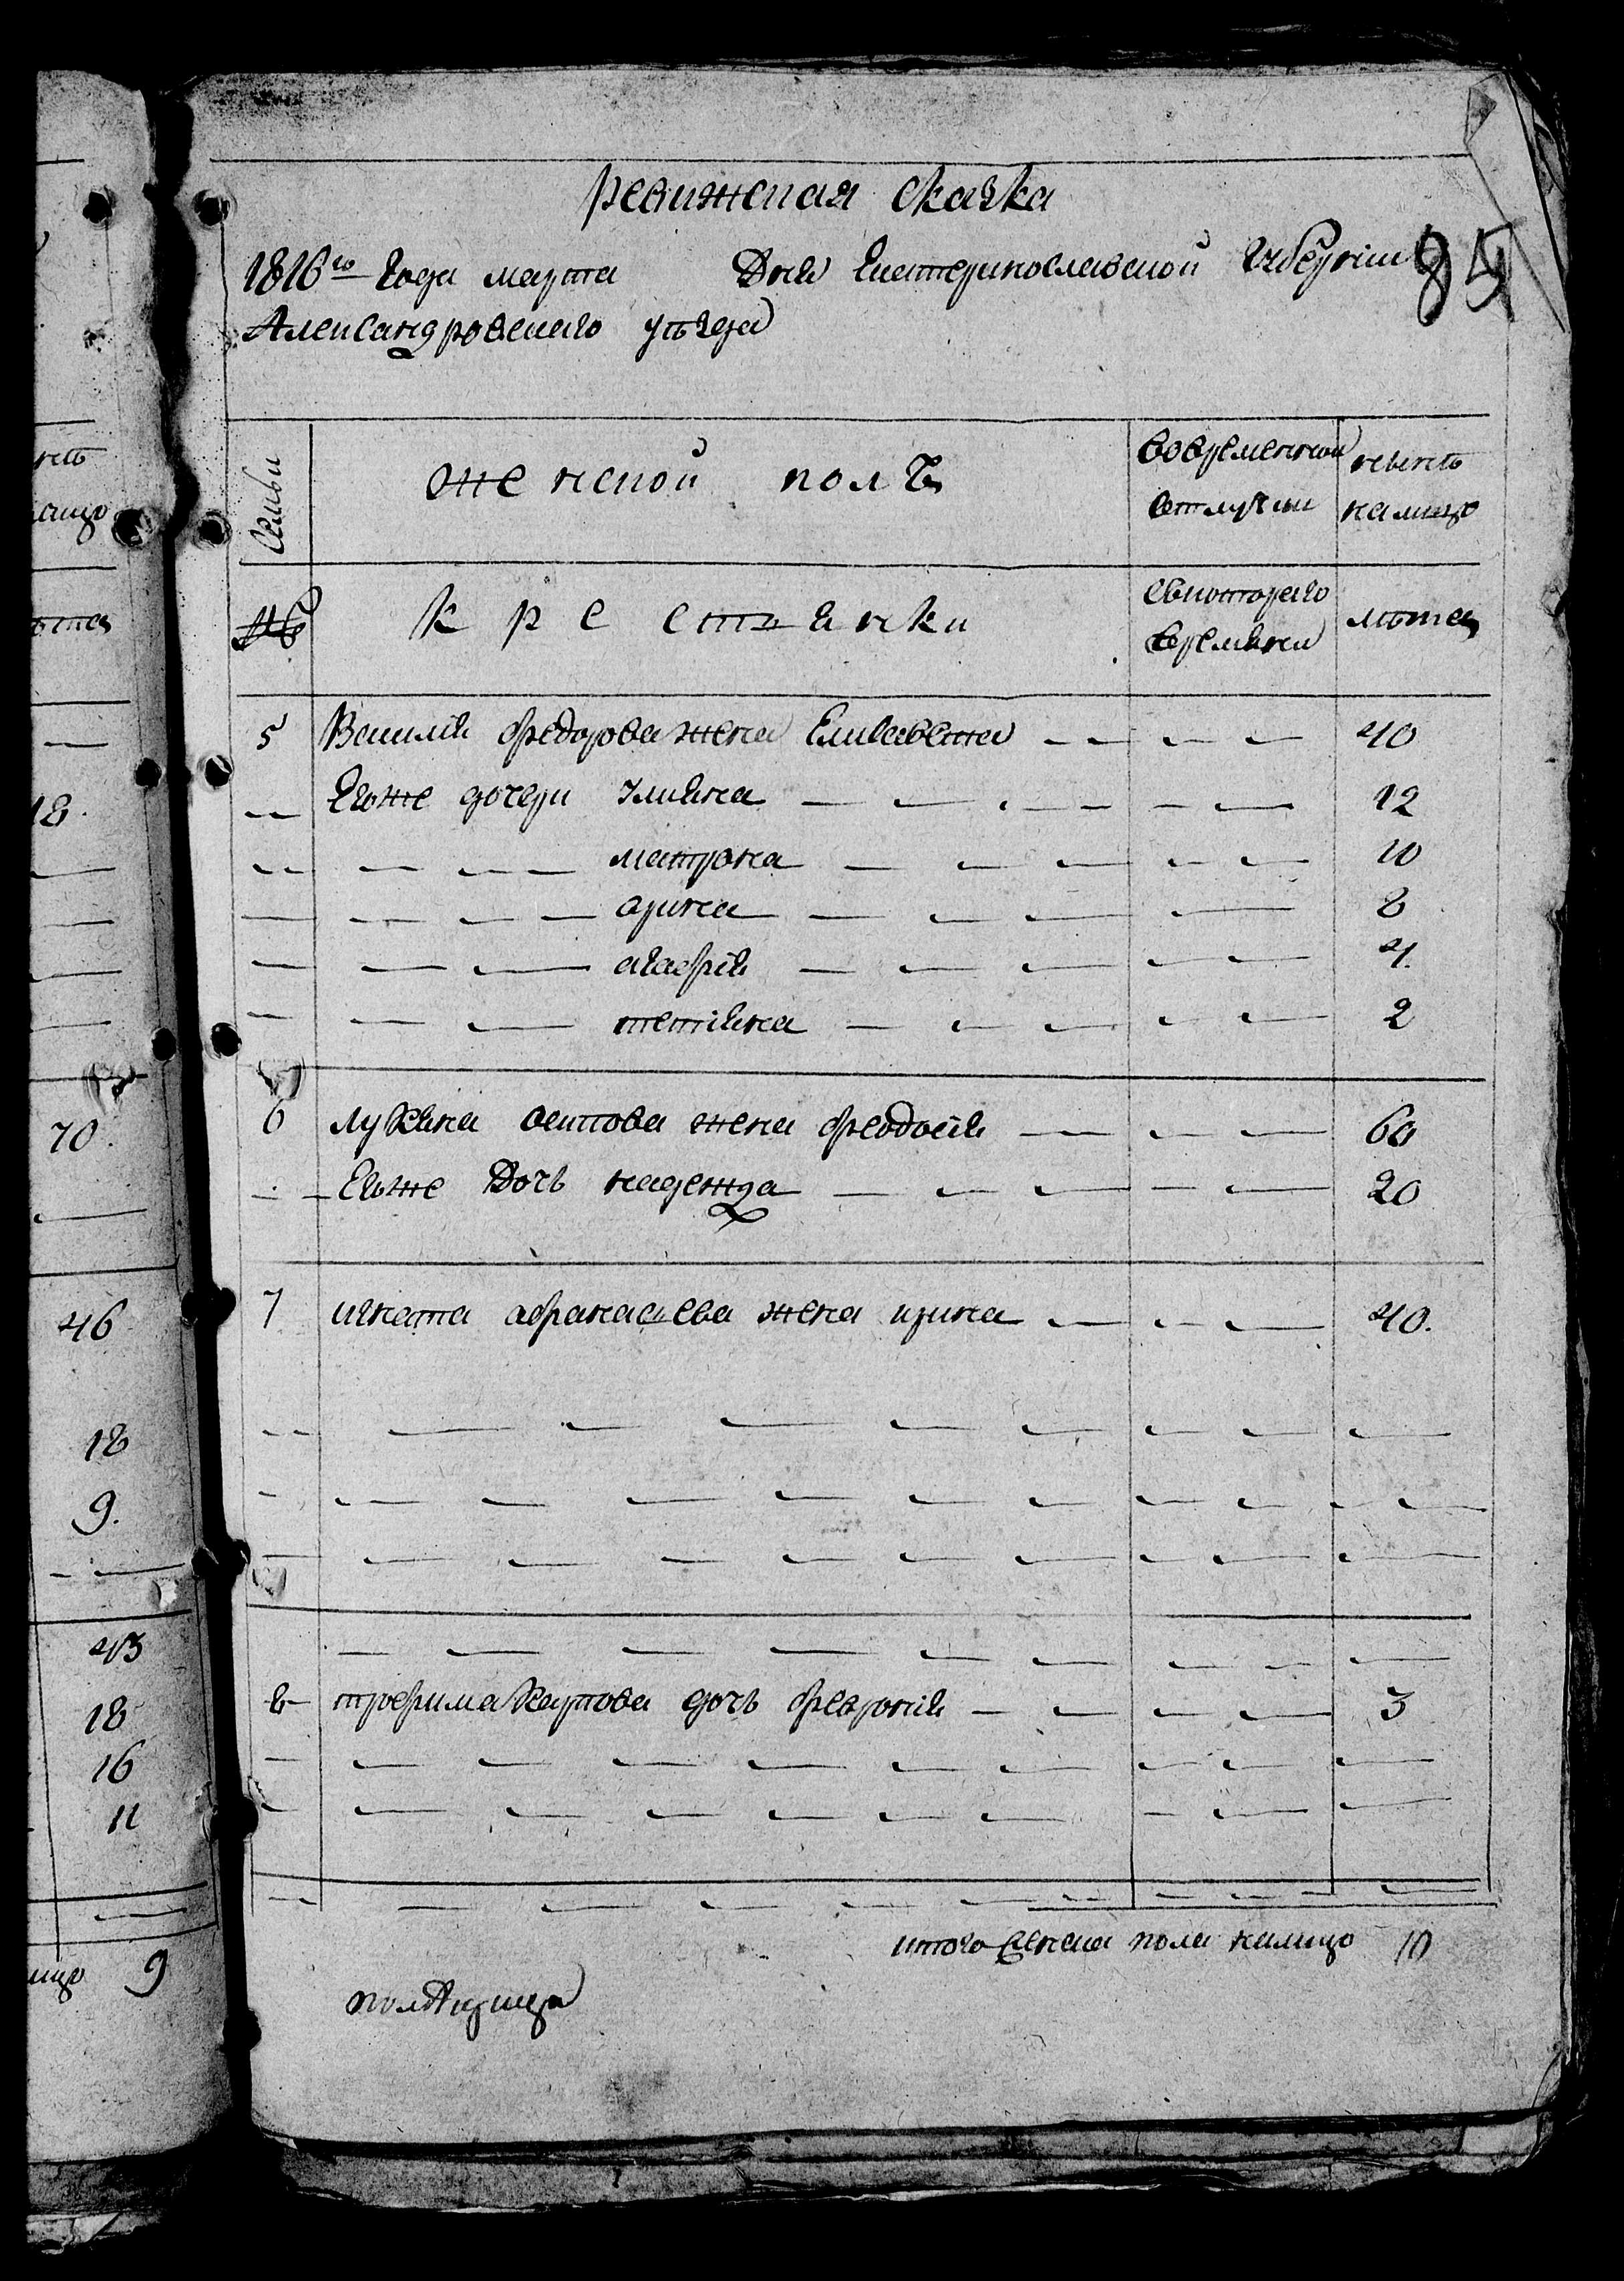 ревижская сказка
1816го года марта Дня Екатеринославской губернии 85
Александровскаго уъзда
Семьи
женской полъ
вовременной отлучки
нынъ налицо
№
крестьянки
скотораго времяни
лъта
5 Василия федорова жена Елисавета 40
Егоже дочери Улияна 12
матрона 10
арина 8
агафия 4.
тетияна 2
6 лукяна осипова жена феодосия 60
Егоже Дочь надежда 20
7 игната афанасьева жена ирина 40.
8 трофима Карпова дочь феврония 3
итого женска пола налицо 10
нетъ
лицо
лъта
18.
70.
46
18
9.
43
18
16
11
лицо 9